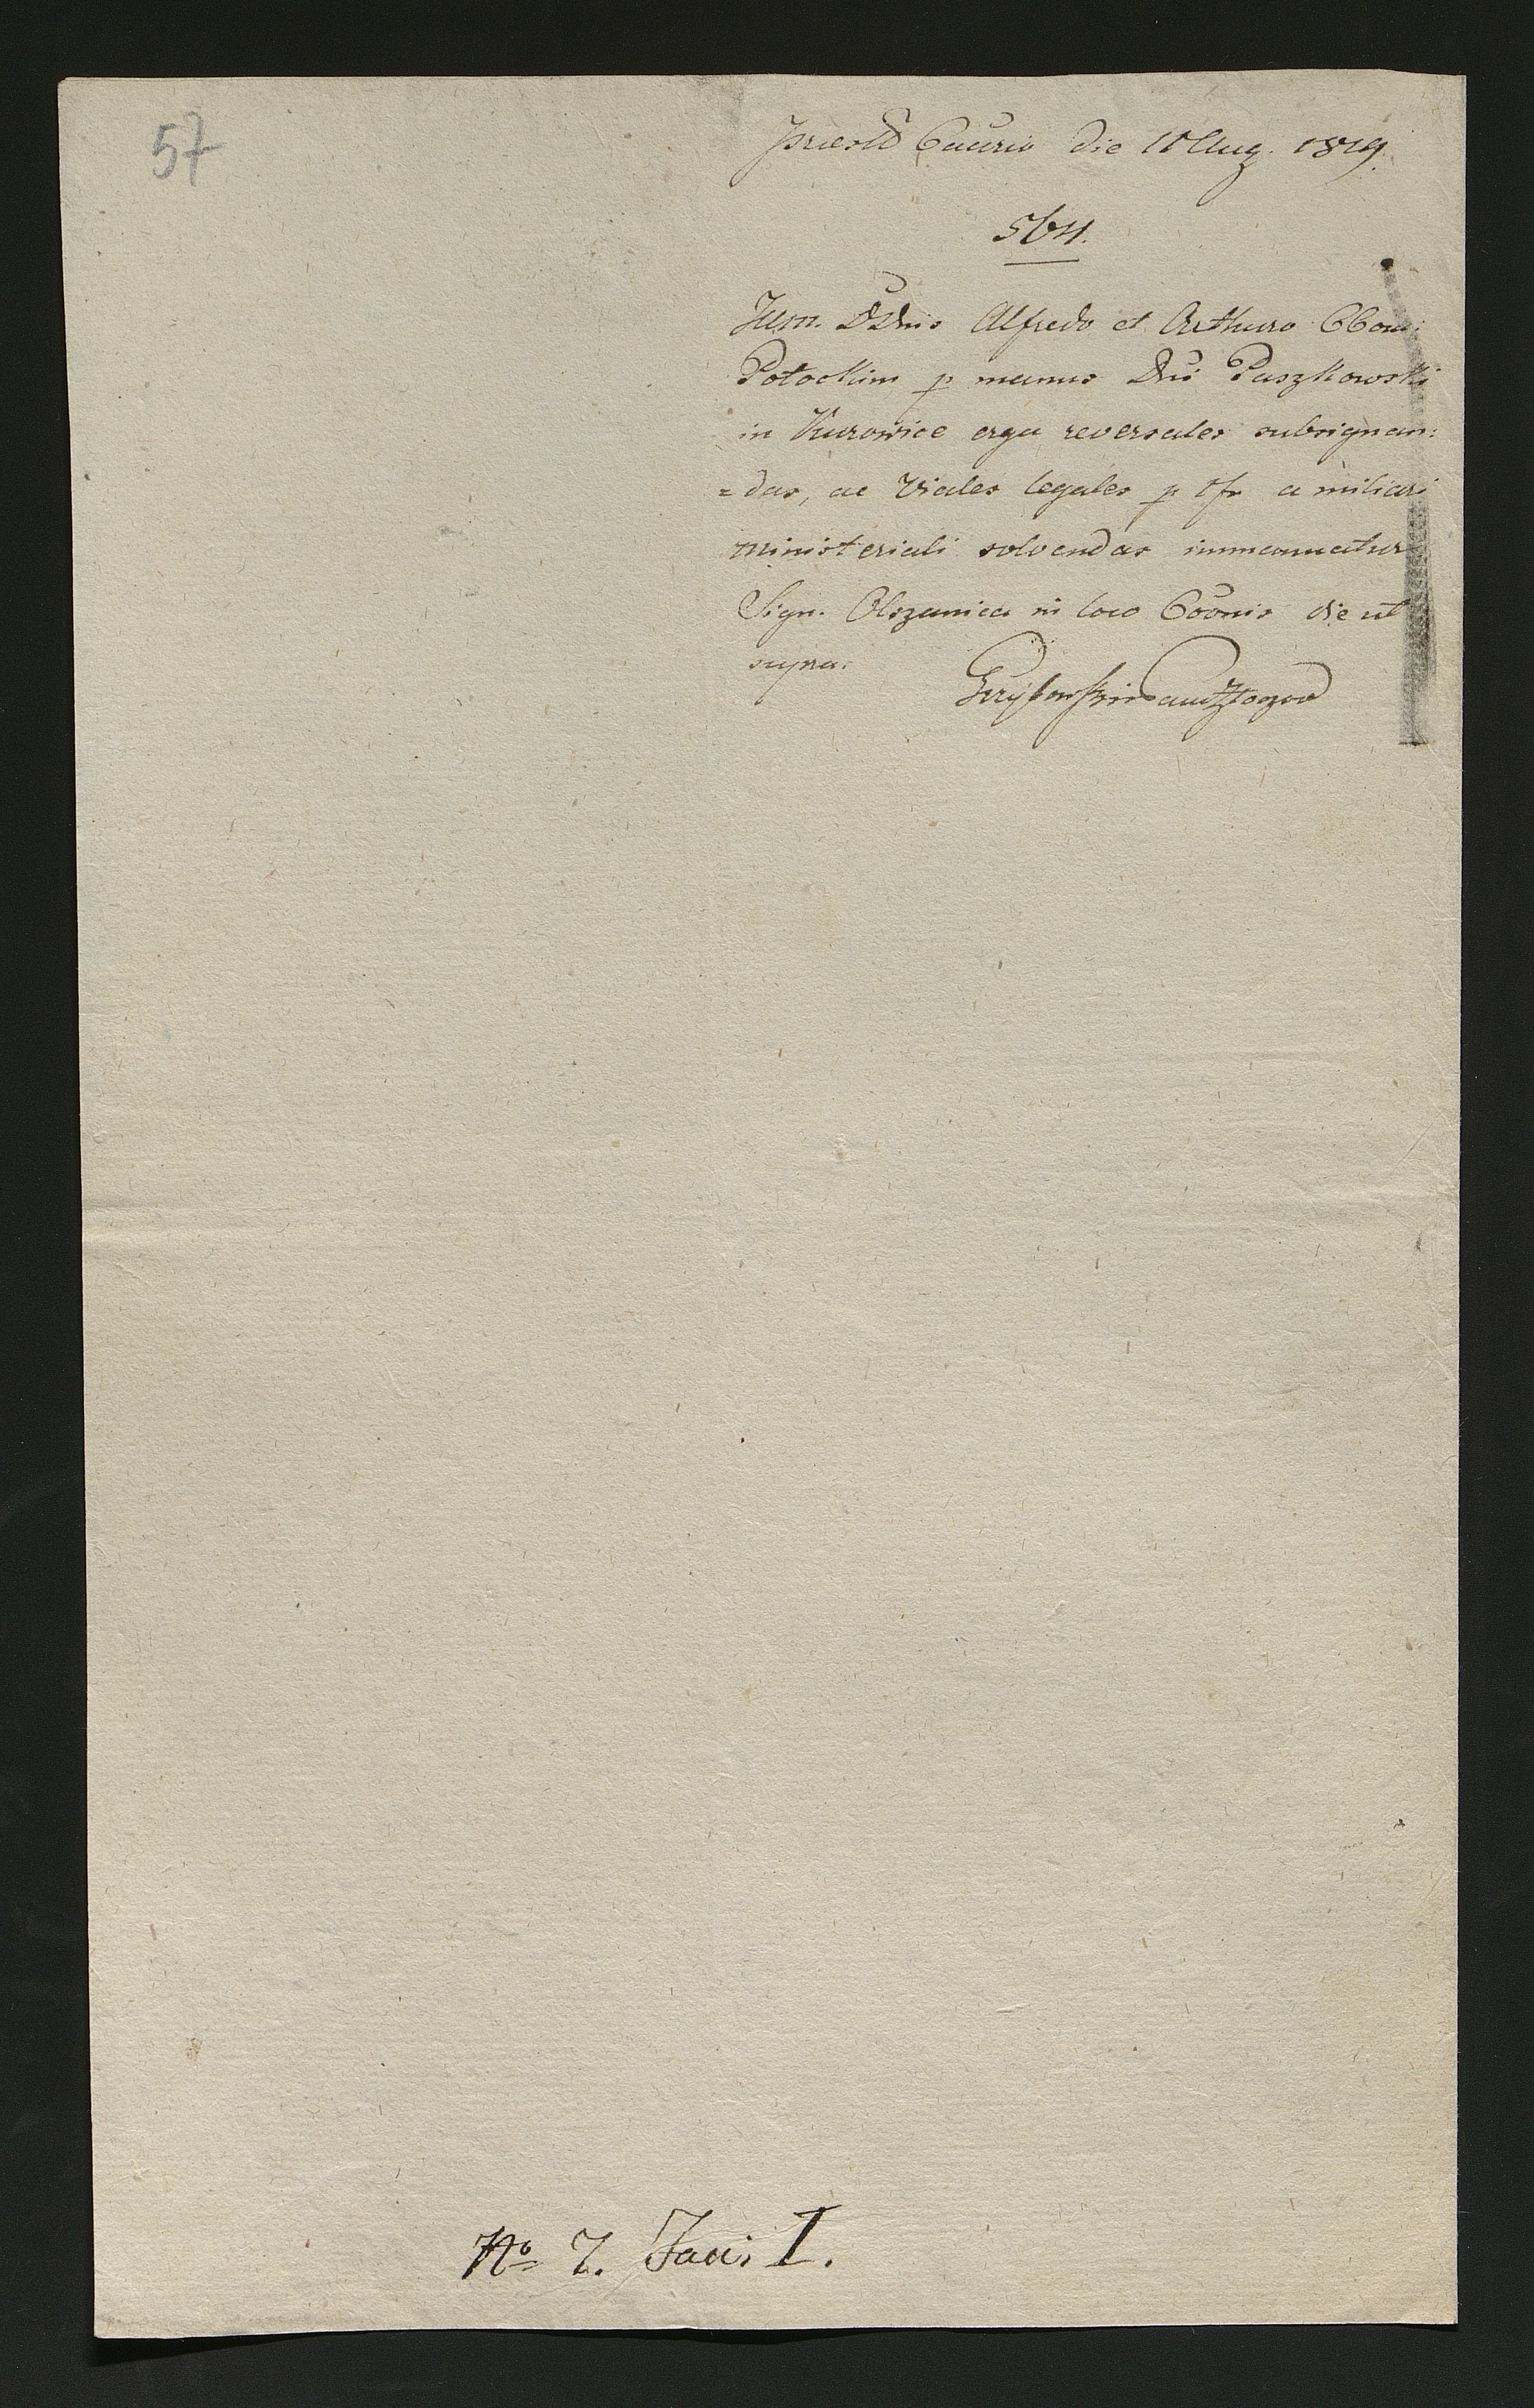 57
praestõ Cauris die 11 Aug. 1819.
5641.
Illm. DDnis Alfredo et Arthuro CCom:
Potockim p manus Dni Paszkowski
in Kurowice erga reversales subsignan:
=das, ac viales legales p 1 fr a miliari
ministeriali solvendas immanuatur
Sign. Olszanica in loco Coõnis die ut
supra.
No 7. Fasci I.